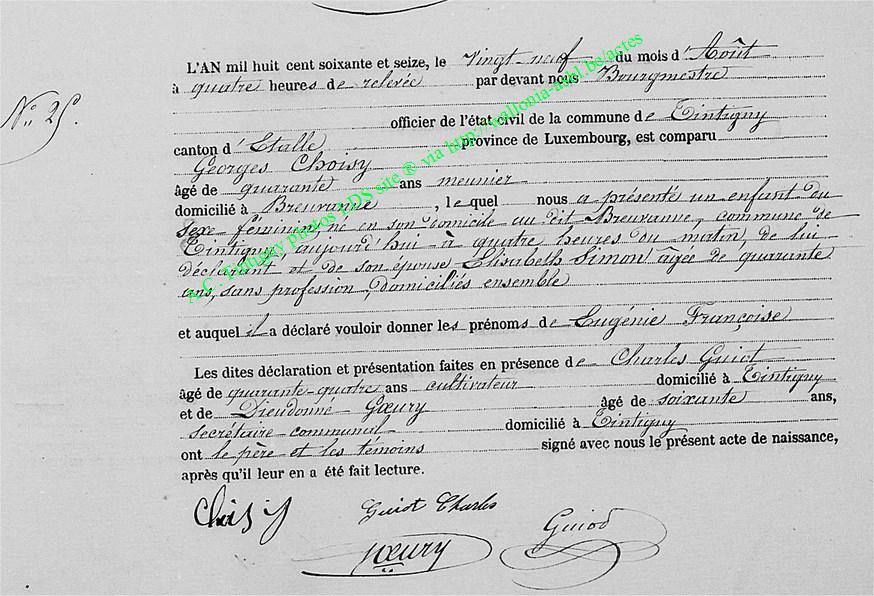 L'AN mil huit cent soixante et seize, le Vingt-neuf du mois d'Août
à quatre heures de relevée par devant nous Bourgmestre
N° 25.
officier de l'état civil de la commune de Tintigny
canton d'Etalle province de Luxembourg, est comparu
Georges Choisy
âgé de quarante ans meunier
domicilié à Breuvanne, lequel nous a présenté un enfant du
sexe féminin, né en son domicile au dit Breuvanne, commune de
Tintigny, aujourd'hui à quatre heures du matin, de lui
déclarant et de son épouse Elisabeth Simon âgée de quarante
ans, sans profession, domiciliés ensemble
et auquel il a déclaré vouloir donner les prénoms de Eugénie Françoise
Les dites déclaration et présentation faites en présence de Charles Guiot
âgé de quarante-quatre ans cultivateur domicilié à Tintigny
et de Dieudonné Gœury âgé de soixante ans,
secrétaire communal domicilié à Tintigny
ont le père et les témoins signé avec nous le présent acte de naissance,
après qu'il leur en a été fait lecture.
Choisy Guiot Charles
Gœury Guiod
A.C. Tintigny photos PDS site ® via http://wallonia-asbl.be/actes